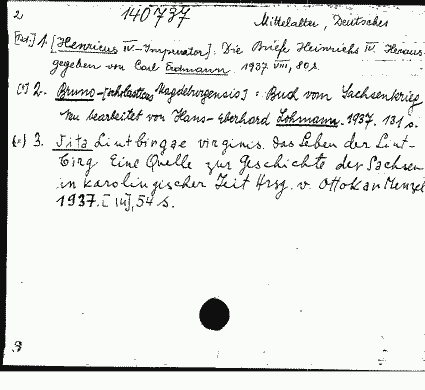 2 140737 Mittelalter, Deutsches
1. [Henricus IV-Imperator]. Die Briefe Heinrichs IV. Heraus-
gegeben von Carl Erdmann. 1937. VIII, 80 s.
2. Bruno-[scholasticus Magdeburgensis]: Buch vom Sachsenkrieg
Neu bearbeitet von Hans-Eberhard Lohmann. 1937. 131 s.
3. Vita Liutbirgae virginis. Das Leben der Liut-
birg. Eine Quelle zur Geschichte der Sachsen
in karolingischer Zeit Hrsg. v. Ottokar Menzel
1937. [III], 54 s.